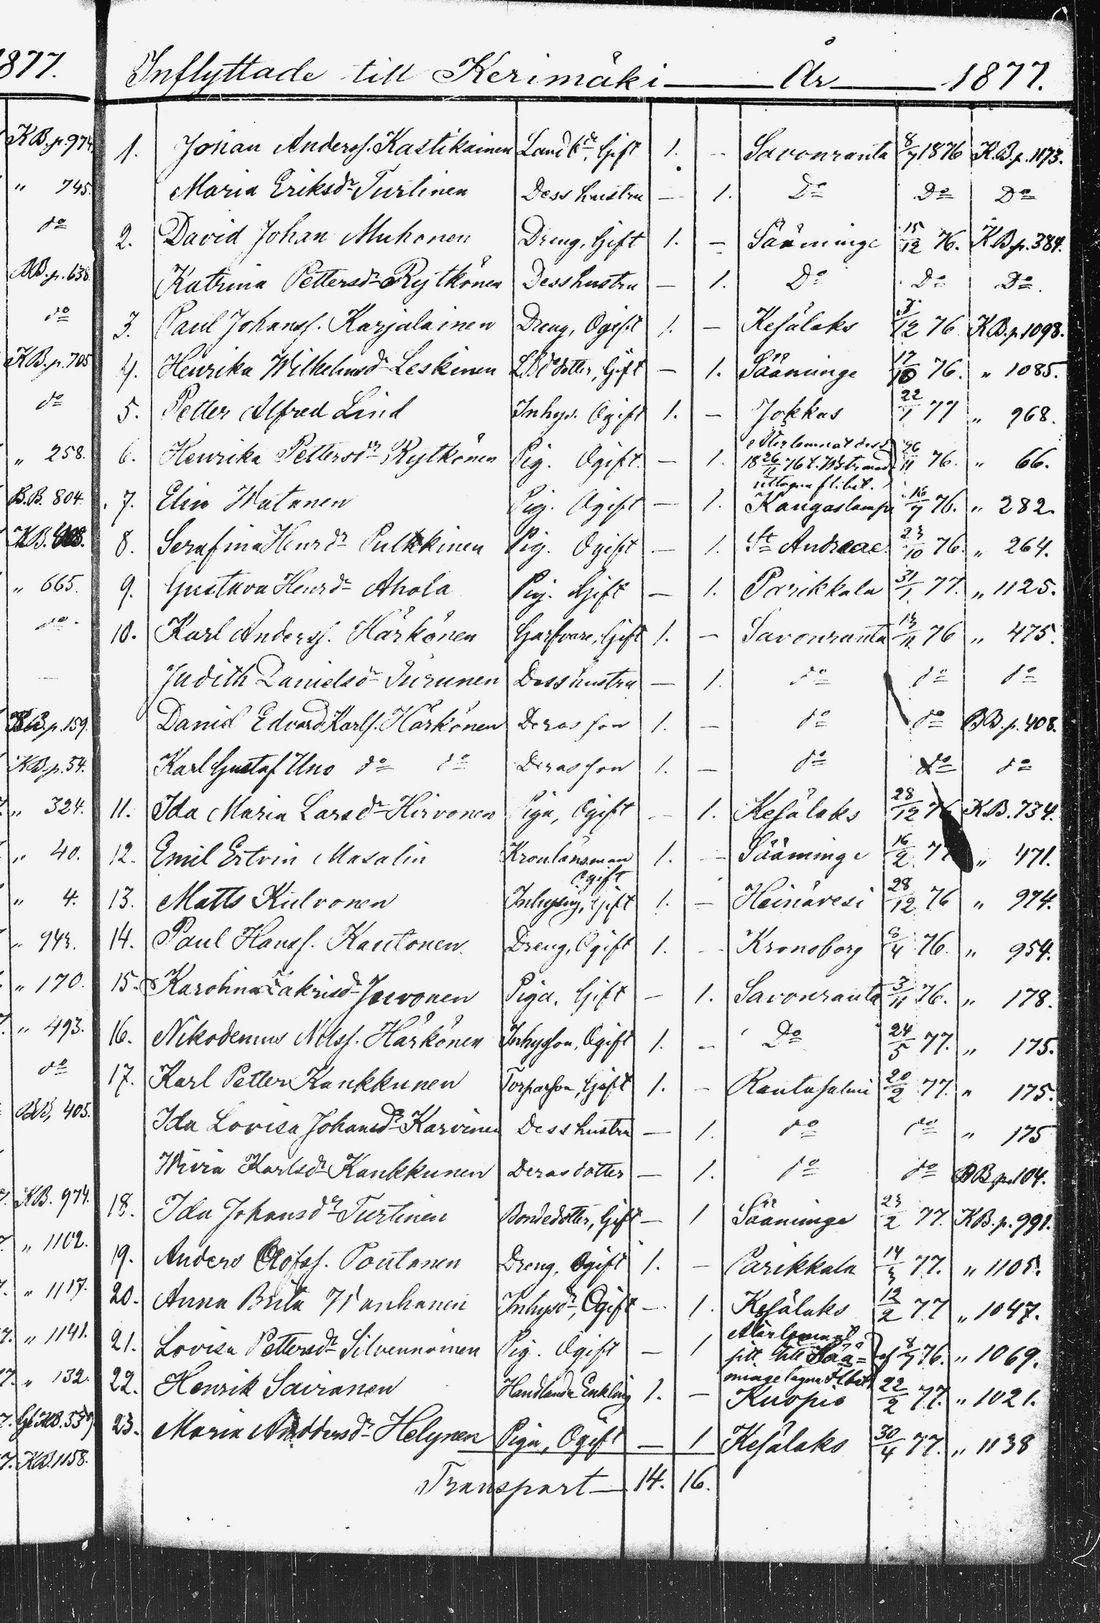 1877.
KB. p. 974
„ 745
do
BB. p. 638.
do
KB. p. 705
do
„ 258.
B.B. 804.
„ 665.
do
p. 159.
KB. p. 54.
„ 324.
„ 40.
„ 4.
„ 943.
„ 170.
„ 493.
do
405.
KB. 974.
„ 1102.
„ 1117.
„ 1141.
„ 132.
KB. 1158.
Inflyttade till Kerimäki År 1877.
1. Josian Anderss. Kastikainen Gift 1. — Savonranta 8/7 1876 KB. p. 1173.
Maria Eriksdr Turtinen Dess hustru — 1. Do Do Do
2. David Johan Muhonen Dreng, Gift 1. — Sääminge 15/12 76. KB p. 384.
Katrina Pettersdr Rytkönen Dess hustru — 1. Do Do Do.
3. Paul Johanss. Karjalainen Dreng, Ogift 1. — Kesälaks 3/12 76 KB. p. 1098.
4. Henrika Wilhelmsdr Leskinen Gift — 1. Sääminge 17/10 76. „ 1085.
5. Petter Alfred Lind Inhys. Ogift 1. — Jokkas 22/1 77 „ 968.
6. Henrika Pettersdr Rytkönen Pig. Ogift — 1. 26/11 76. „ 66.
7. Elin Watanen Pig. Ogift — 1. Kangaslampi 16/7 76. „ 282.
8. Serafina Henrdr Pulkkinen Pig. Ogift — 1. St Andreae 23/10 76. „ 264.
9. Gustava Henrdr Ahola Pig. Gift — 1. Parikkala 31/1 77. „ 1125.
10. Karl Anderss. Härkönen Garfvare, Gift 1. — Savonranta 13/11 76 „ 475.
Judith Danielsdr Turunen Dess hustru — 1. do do do
Daniel Edvard Karls. Härkönen Deras son 1. — do do BB. p. 408.
Karl Gustaf Uno do do Deras son 1. — do do do
11. Ida Maria Larsdr Hirvonen Piga, Ogift — 1. Kesälaks 28/12 76 KB. 734.
12. Emil Ervin Masalin Kronlänsman Ogift 1. — Sääminge 16/2 77 „ 471.
13. Matts Kulvonen Inhysing, Gift 1. — Heinävesi 28/12 76 „ 974.
14. Paul Hanss. Kautonen Dreng, Ogift 1. — Kronoborg 8/4 76. „ 954.
15. Karolina Zakrisdr Jouvonen Piga, Gift — 1. Savonranta 3/11 76. „ 178.
16. Nikodemus Nilss. Härkönen Inhysson, Ogift 1. — Do 24/5 77. „ 175.
17. Karl Petter Kankkunen Torparson, Gift 1. — Rantasalmi 20/2 77. „ 175.
Ida Lovisa Johansdr Karvinen Dess hustru — 1. do do „ 175
Karlsdr Kankkunen Deras dotter — 1. do do BB. p. 104.
18. Ida Johansdr Turtinen Bondedotter, Gift — 1 Sääminge 23/2 77. KB. p. 991.
19. Anders Olofss. Poutanen Dreng, Ogift 1. — Parikkala 14/3 77. „ 1105.
20. Anna Brita Wanhanen Inhysdr, Ogift — 1. Kesälaks 12/2 77 „ 1047.
21. Lovisa Pettersdr Silvennoinen Pig. Ogift — 1 till Sää= minge 8/7 76. „ 1069.
22. Henrik Sairanen Handlande Enkling 1. — Kuopio 22/2 77. „ 1021.
23. Maria Andersdr Helynen Piga, Ogift — 1 Kesälaks 30/4 77. „ 1138
Transport — 14. 16.